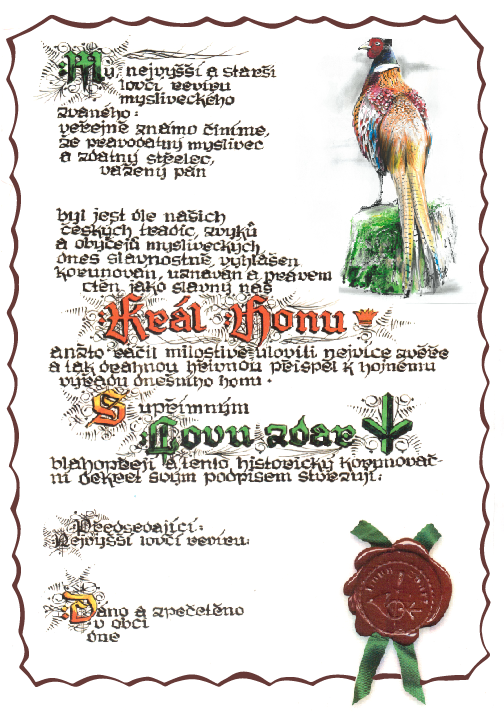 My, nejvyšší a starší
lovčí revíru
mysliveckého
zvaného:
veřejně známo činíme,
že pravodatný myslivec
a zdatný střelec,
vážený pán
byl jest dle našich
českých tradic, zvyků
a obyčejů mysliveckých
dnes slavnostně vyhlášen
korunován, uznáván a právem
ctěn jako slavný náš
Král Honu
anžto ráčil milostivě uloviti nejvíce zvěře
a tak drahnou hřivnou přispěl k hojnému
výřadu dnešního honu.
S upřímným
Lovu zdar
blahopřejí a tento historický korunovač-
ní dekret svým podpisem stvrzují:
Předsedající:
Nejvyšší lovčí revíru:
Dáno a zpečetěno
v obci
dne